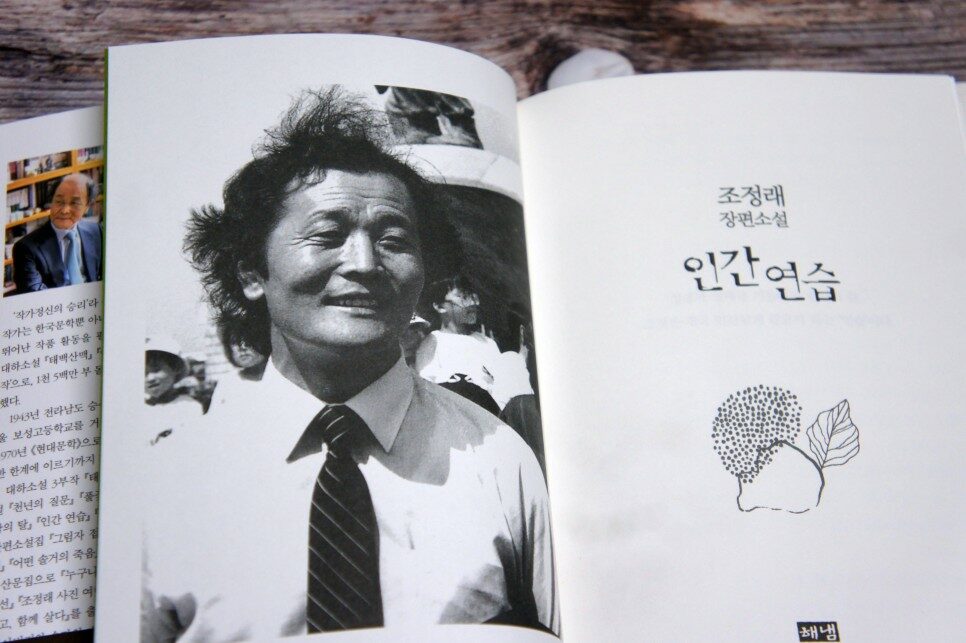 '작가정신의 승리'라
작가는 한국문학뿐 아니
뛰어난 작품 활동을 펼
대하소설 『태백산맥』 『
작으로, 1천 5백만 부 돌
했다.
1943년 전라남도 승
울 보성고등학교를 거
970년 《현대문학》으로
한 한계에 이르기까지
대하소설 3부작 『태
설 『천년의 질문』 『풀꽃
의 달』 『인간 연습』 『
편소설집 『그림자 접
』 『어떤 솔거의 죽음』
산문집으로 『누구나
선』 『조정래 사진 여
고, 함께 살다』를 출
조정래
장편소설
인간 연습
해냄